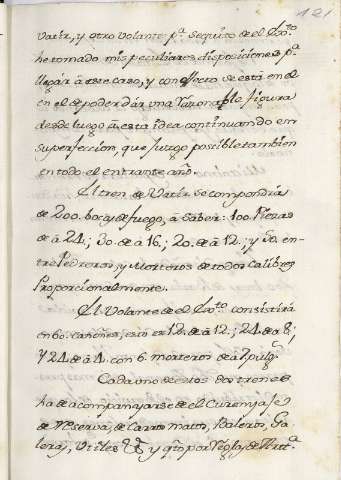 121
vatir, y otro volante pª. sequito de el Exto.
he tomado mis peculiares disposiciones pª.
llegar á este caso, y con effecto se está en el
en el de poder dár una razonable figura
desde luego á esta idea continuando en
su perfeccion, que juzgo posible tambien
en todo el entrante año.
El tren de Vatir se compondrá
de 200. bocas de fuego, á saber: 100. Piezas
de á 24; 30. de á 16; 20. de á 12; y 50. en-
tre Pedreros, y Morteros de todos calibres
Proporcionalmente.
El Volante de el Exto. consistirá
en 60. cañones, esto es 12. de á 12; 24. de á 8;
y 24. de á 4. con 6. morteros de á 7. pulgs.
Cada uno de estos dos trenes
ha de acompañarse de el Curenaje
de Reserva, de Carros matos, Baleros, Ga-
leras, Utiles &ª. y qto. por Regla, de Artª.